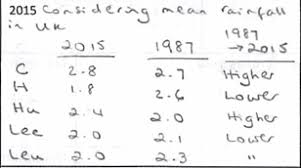 2015 Considering mean rainfall
in UK 1987
2015 1987 → 2015
C 2.8 2.7 Higher
H 1.8 2.6 Lower
Hu 2.4 2.0 Higher
Lee 2.0 2.1 Lower
Leu 2.0 2.3 "